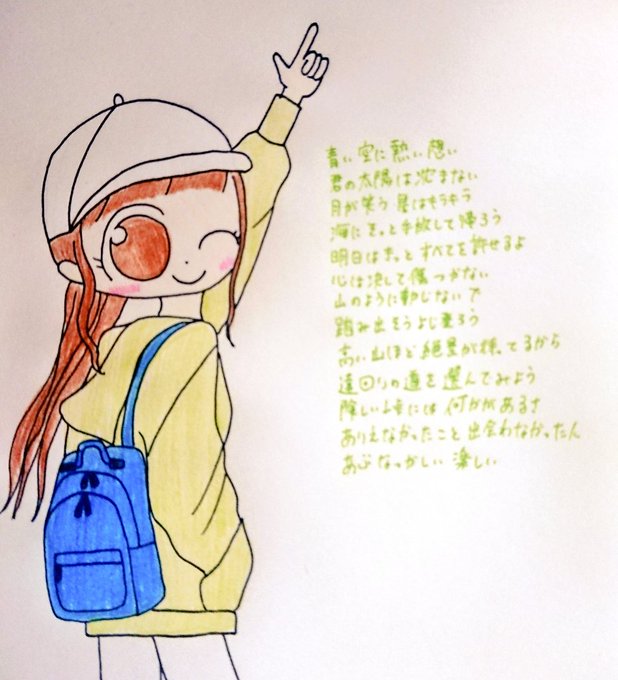 青い空に熱い想い
君の太陽は沈まない
月が笑う星はキラキラ
海にきっと手放して帰ろう
明日はきっとすべてを許せるよ
心は決して傷つかない
山のように動じないで
踏み出そうよじ登ろう
高い山ほど絶景が待ってるから
遠回りの道を選んでみよう
険しい には何かがあるさ
ありえなかったこと出会わなかった人
あぶなっかしい楽しい